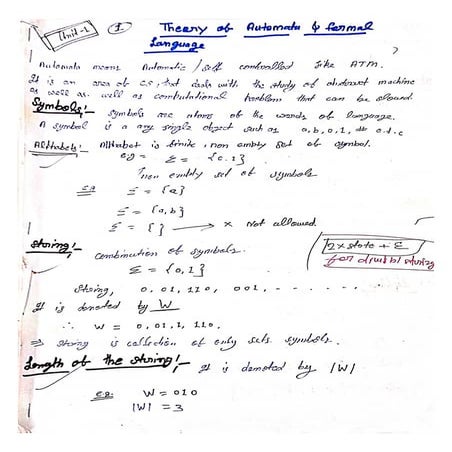 Unit-1
1.
Theory of Automata & formal
Language
?
Automata means Automatic / self controlled like ATM.
It is an area of C.S, that deals with the study of abstract machine
as well as. well as computational Problem that can be slowed.
Symbols:- Symbols are atoms of the words of language.
A symbol is a any single object such as a,b,0,1, # e.t.c
Alphabets:- Alphabet is finite, non empty set of symbol.
eg = Σ = {0.1}
non emlity set of symbols
e.g Σ = {a}
Σ = {a,b}
Σ = { } → × Not allowed.
string:- combination of symbols.
Σ = {0,1}
2 x state + Σ
for string
String, 0. 01, 110, 001, - - - - - -
It is denoted by W
∴ W = 0, 01, 1, 110.
⇒ string is collection of only sets symbols.
Length of the string:- It is denoted by |W|
e.g. W = 010
|W| = 3